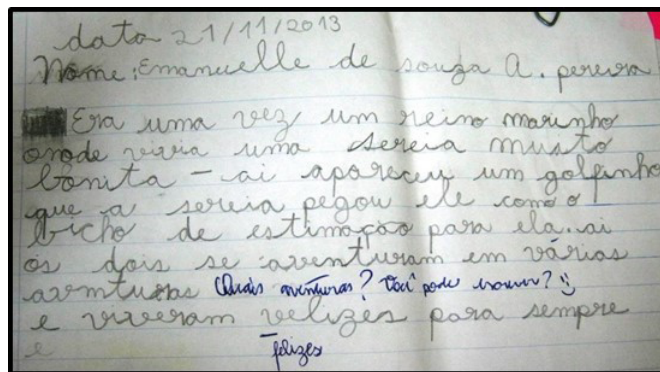 data 21/11/2013
Nome: Emanuelle de souza A. pereira
Era uma vez um reino marinho
onode vivia uma sereia muito
bonita - ai apareceu um golfinho
que a sereia pegou ele como o
bicho de estimação para ela. ai
os dois se aventuram em várias
avmturas Quais aventuras? Você pode escrever? :)
e viveram velizes para sempre
e felizes